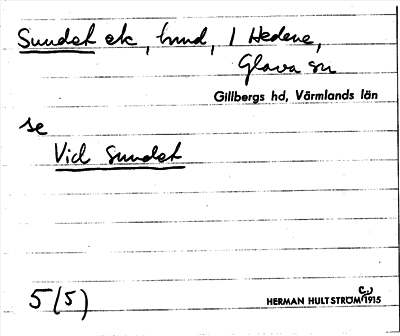 Sundet ek, hmd, 1 Hedene,
Glava sn
Gillbergs hd, Värmlands län
se
Vid Sundet
5(5)
HERMAN HULTSTRÖM 1915